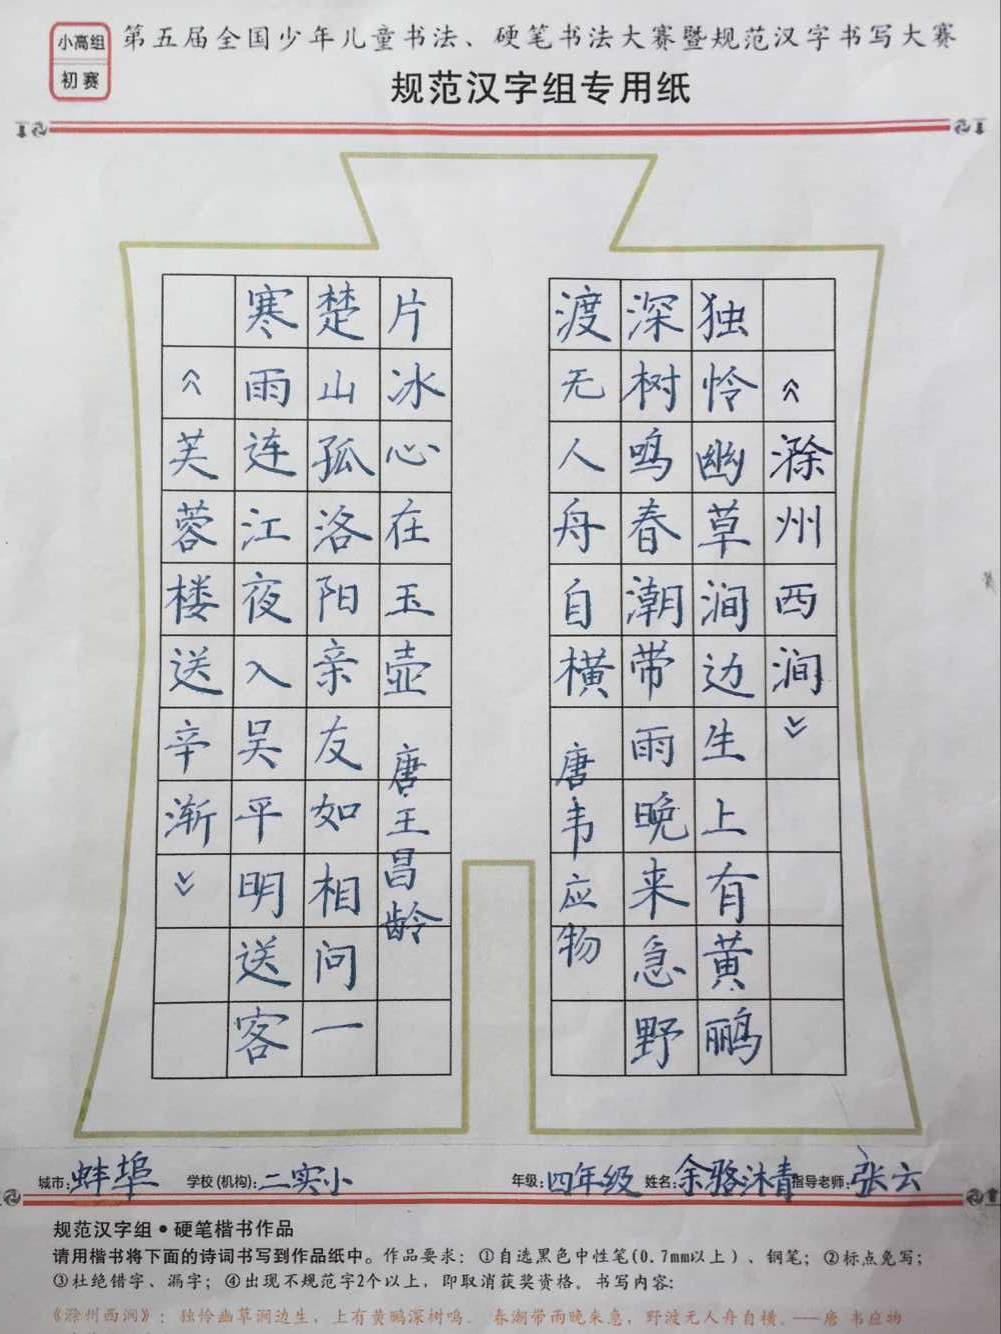 小高组
初赛
第五届全国少年儿童书法、硬笔书法大赛暨规范汉字书写大赛
规范汉字组专用纸
《滁州西涧》
独怜幽草涧边生上有黄鹂
深树鸣春潮带雨晚来急野
渡无人舟自横 唐韦应物
《芙蓉楼送辛渐》
寒雨连江夜入吴平明送客
楚山孤洛阳亲友如相问一
片冰心在玉壶 唐王昌龄
城市:蚌埠 学校(机构):二实小 年级:四年级 姓名:余骆沐青 指导老师:张云
规范汉字组·硬笔楷书作品
请用楷书将下面的诗词书写到作品纸中。作品要求：①自选黑色中性笔(0.7mm以上)、钢笔；②标点免写；
③杜绝错字、漏字；④出现不规范字2个以上，即取消获奖资格。书写内容:
《滁州西涧》：独怜幽草涧边生，上有黄鹂深树鸣。 春潮带雨晚来急，野渡无人舟自横。——唐 韦应物